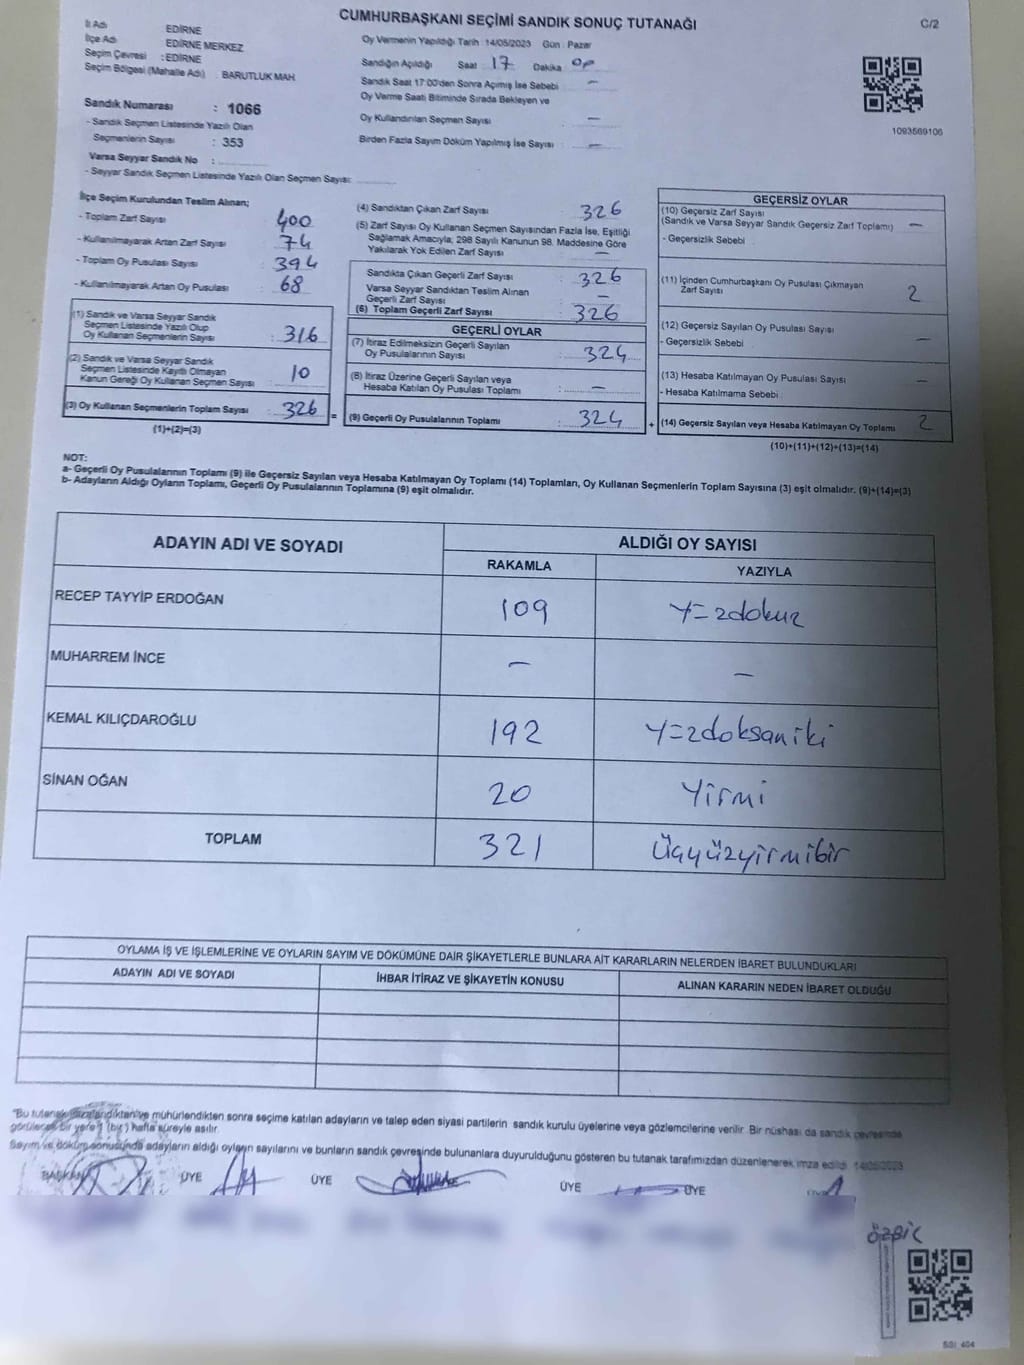 CUMHURBAŞKANI SEÇİMİ SANDIK SONUÇ TUTANAĞI
C/2
İl Adı EDİRNE
İlçe Adı EDİRNE MERKEZ
Seçim Çevresi : EDİRNE
Seçim Bölgesi (Mahalle Adı) : BARUTLUK MAH.
Sandık Numarası : 1066
- Sandık Seçmen Listesinde Yazılı Olan
Seçmenlerin Sayısı : 353
Varsa Seyyar Sandık No :
- Seyyar Sandık Seçmen Listesinde Yazılı Olan Seçmen Sayısı:
Oy Vermenin Yapıldığı Tarih : 14/05/2023 Gün : Pazar
Sandığın Açıldığı Saat 17 Dakika
Sandık Saat 17:00'den Sonra Açılmış İse Sebebi –
Oy Verme Saati Bitiminde Sırada Bekleyen ve
Oy Kullandırılan Seçmen Sayısı –
Birden Fazla Sayım Döküm Yapılmış İse Sayısı –
1093569106
İlçe Seçim Kurulundan Teslim Alınan;
- Toplam Zarf Sayısı 400
- Kullanılmayarak Artan Zarf Sayısı 74
- Toplam Oy Pusulası Sayısı : 394
- Kullanılmayarak Artan Oy Pusulası : 68
(1) Sandık ve Varsa Seyyar Sandık
Seçmen Listesinde Yazılı Olup
Oy Kullanan Seçmenlerin Sayısı : 316
(2) Sandık ve Varsa Seyyar Sandık
Seçmen Listesinde Kayıtlı Olmayan
Kanun Gereği Oy Kullanan Seçmen Sayısı : 10
(3) Oy Kullanan Seçmenlerin Toplam Sayısı : 326
(1)+(2)=(3)
=
(4) Sandıktan Çıkan Zarf Sayısı 326
(5) Zarf Sayısı Oy Kullanan Seçmen Sayısından Fazla İse, Eşitliği
Sağlamak Amacıyla, 298 Sayılı Kanunun 98. Maddesine Göre
Yakılarak Yok Edilen Zarf Sayısı –
Sandıkta Çıkan Geçerli Zarf Sayısı : 326
Varsa Seyyar Sandıktan Teslim Alınan
Geçerli Zarf Sayısı –
(6) Toplam Geçerli Zarf Sayısı : 326
GEÇERLİ OYLAR
(7) İtiraz Edilmeksizin Geçerli Sayılan
Oy Pusulalarının Sayısı : 324
(8) İtiraz Üzerine Geçerli Sayılan veya
Hesaba Katılan Oy Pusulası Toplamı : –
(9) Geçerli Oy Pusulalarının Toplamı : 324
+
GEÇERSİZ OYLAR
(10) Geçersiz Zarf Sayısı
(Sandık ve Varsa Seyyar Sandık Geçersiz Zarf Toplamı) –
- Geçersizlik Sebebi
(11) İçinden Cumhurbaşkanı Oy Pusulası Çıkmayan
Zarf Sayısı 2
(12) Geçersiz Sayılan Oy Pusulası Sayısı
- Geçersizlik Sebebi –
(13) Hesaba Katılmayan Oy Pusulası Sayısı –
- Hesaba Katılmama Sebebi
(14) Geçersiz Sayılan veya Hesaba Katılmayan Oy Toplamı 2
(10)+(11)+(12)+(13)=(14)
NOT:
a- Geçerli Oy Pusulalarının Toplamı (9) ile Geçersiz Sayılan veya Hesaba Katılmayan Oy Toplamı (14) Toplamları, Oy Kullanan Seçmenlerin Toplam Sayısına (3) eşit olmalıdır. (9)+(14)=(3)
b- Adayların Aldığı Oyların Toplamı, Geçerli Oy Pusulalarının Toplamına (9) eşit olmalıdır.
ADAYIN ADI VE SOYADI
ALDIĞI OY SAYISI
RAKAMLA YAZIYLA
RECEP TAYYİP ERDOĞAN 109 Y=zdokuz
MUHARREM İNCE – –
KEMAL KILIÇDAROĞLU 192 Y=zdoksaniki
SİNAN OĞAN 20 Yirmi
TOPLAM 321 Üçyüzyirmibir
OYLAMA İŞ VE İŞLEMLERİNE VE OYLARIN SAYIM VE DÖKÜMÜNE DAİR ŞİKAYETLERLE BUNLARA AİT KARARLARIN NELERDEN İBARET BULUNDUKLARI
ADAYIN ADI VE SOYADI İHBAR İTİRAZ VE ŞİKAYETİN KONUSU ALINAN KARARIN NEDEN İBARET OLDUĞU
"Bu tutanak imzalandıktan ve mühürlendikten sonra seçime katılan adayların ve talep eden siyasi partilerin sandık kurulu üyelerine veya gözlemcilerine verilir. Bir nüshası da sandık çevresinde
görülecek bir yere 1 (bir) hafta süreyle asılır.
Sayım ve döküm sonusunda adayların aldığı oyların sayılarını ve bunların sandık çevresinde bulunanlara duyurulduğunu gösteren bu tutanak tarafımızdan düzenlenerek imza edildi. 14/05/2023
BAŞKAN ÜYE ÜYE ÜYE ÜYE
ÖZBİC